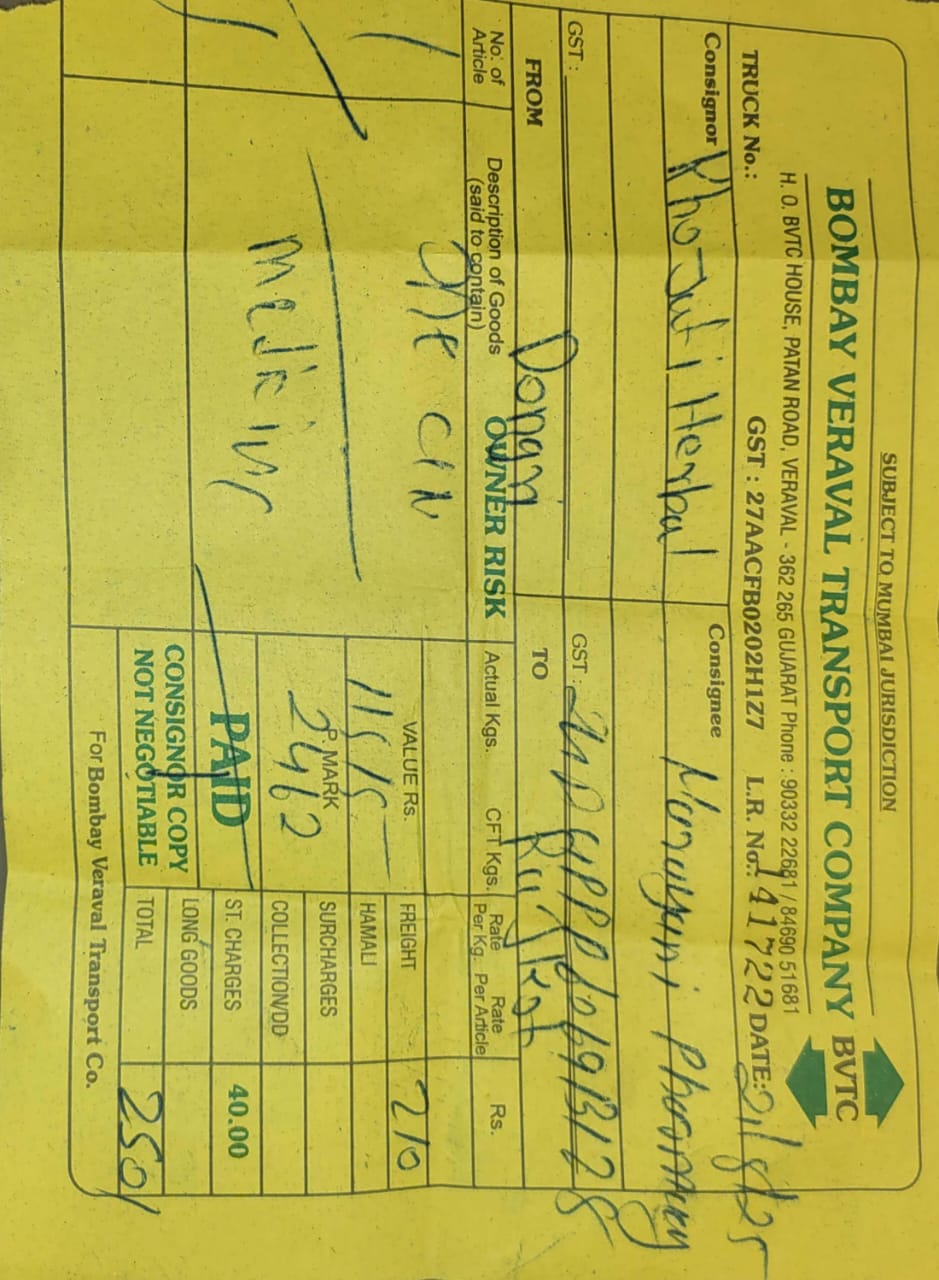 SUBJECT TO MUMBAI JURISDICTION
BOMBAY VERAVAL TRANSPORT COMPANY BVTC
H. O. BVTC HOUSE, PATAN ROAD, VERAVAL - 362 265 GUJARAT Phone : 90332 22681 / 84690 51681
TRUCK No.: GST : 27AACFB0202H1Z7 L.R. No.: 141722 DATE: 21/8/25
Consignor Herbal
Consignee Pharmacy
GST :
GST :
FROM Dongri
TO Rajkot
No. of Article
Description of Goods (said to contain)
OWNER RISK
Actual Kgs.
CFT Kgs.
Rate Per Kg.
Rate Per Article
Rs.
one
medicine
VALUE Rs.
P. MARK
2462
PAID
CONSIGNOR COPY
NOT NEGOTIABLE
FREIGHT 210
HAMALI
SURCHARGES
COLLECTION/DD
ST. CHARGES 40.00
LONG GOODS
TOTAL 250/
For Bombay Veraval Transport Co.